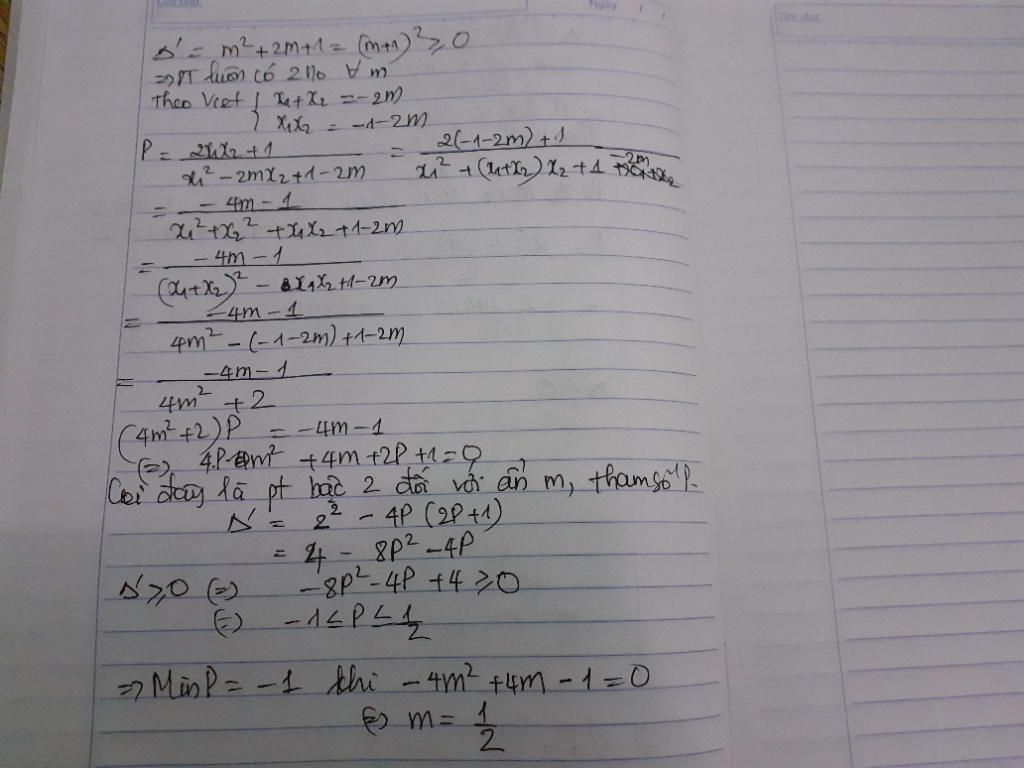 Ngày
Δ' = m² + 2m + 1 = (m+1)² ≥ 0
=> PT luôn có 2 no ∀ m
Theo Viet { x₁ + x₂ = -2m
x₁x₂ = -1-2m
P = (2x₁x₂ + 1)/(x₁² - 2mx₂ + 1 - 2m) = (2(-1-2m) + 1)/(x₁² + (x₁+x₂)x₂ + 1 - 2m)
= (-4m - 1)/(x₁² + x₂² + x₁x₂ + 1 - 2m)
= (-4m - 1)/((x₁+x₂)² - x₁x₂ + 1 - 2m)
= (-4m - 1)/(4m² - (-1-2m) + 1 - 2m)
= (-4m - 1)/(4m² + 2)
(4m² + 2)P = -4m - 1
(=) 4P m² + 4m + 2P + 1 = 0
Coi đây là pt bậc 2 đối với ẩn m, tham số P.
Δ' = 2² - 4P(2P+1)
= 4 - 8P² - 4P
Δ' ≥ 0 (=) -8P² - 4P + 4 ≥ 0
(=) -1 ≤ P ≤ 1/2
=> Min P = -1 khi -4m² + 4m - 1 = 0
(=) m = 1/2